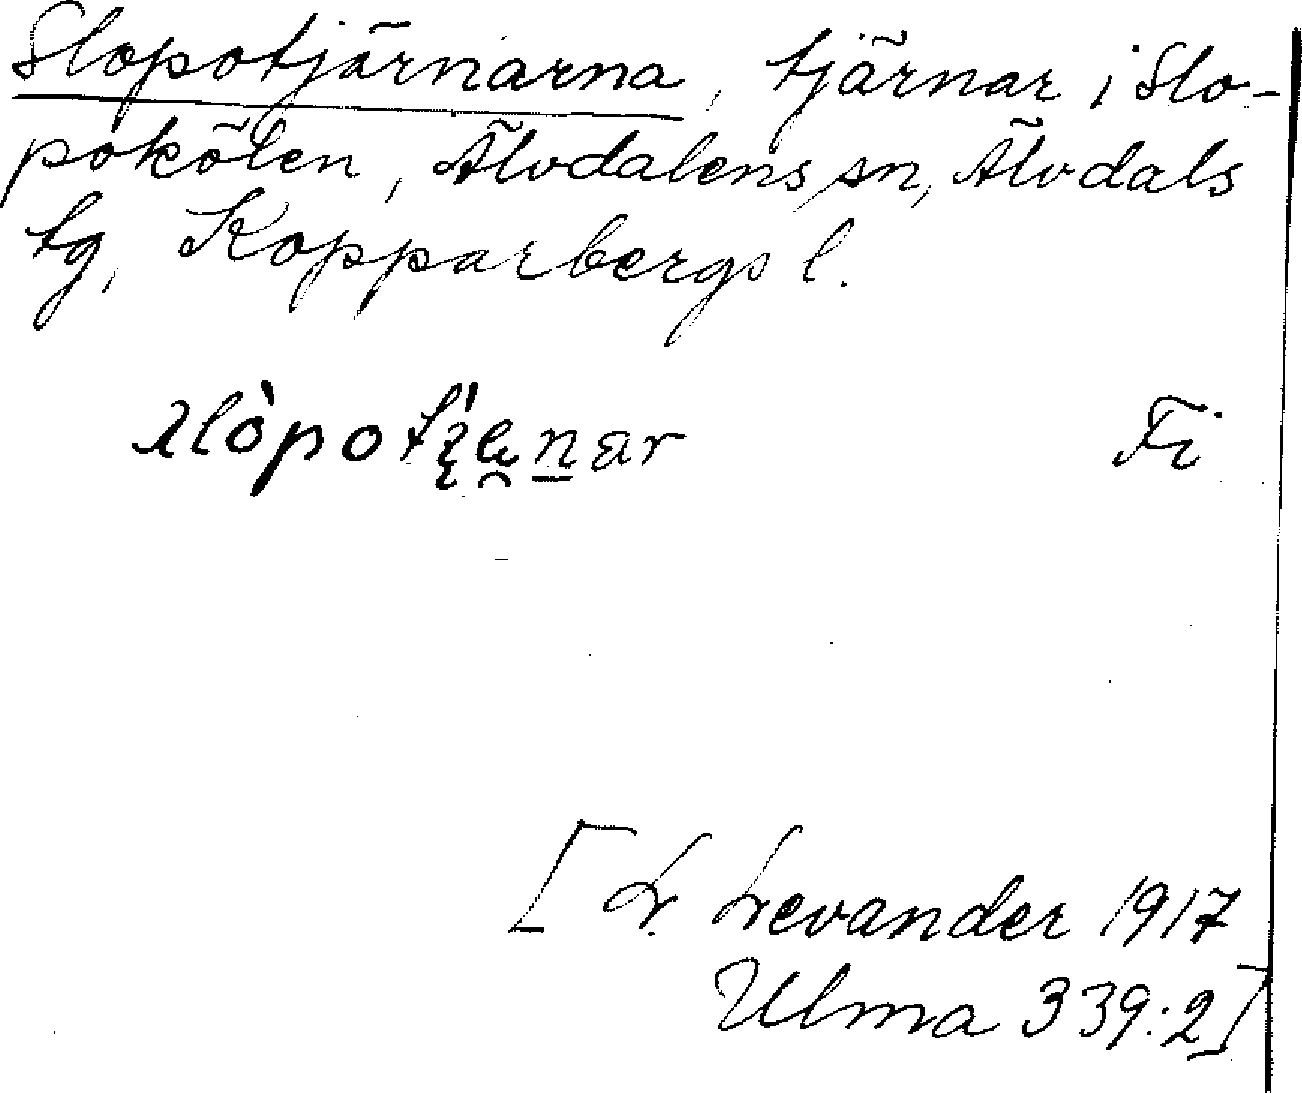 Slopotjärnarna, tjärnar i Slo-
pokölen, Älvdalens sn, Älvdals
tg, Kopparbergs l.
Fi
[L. Levander 1917
Ulma 339:2]